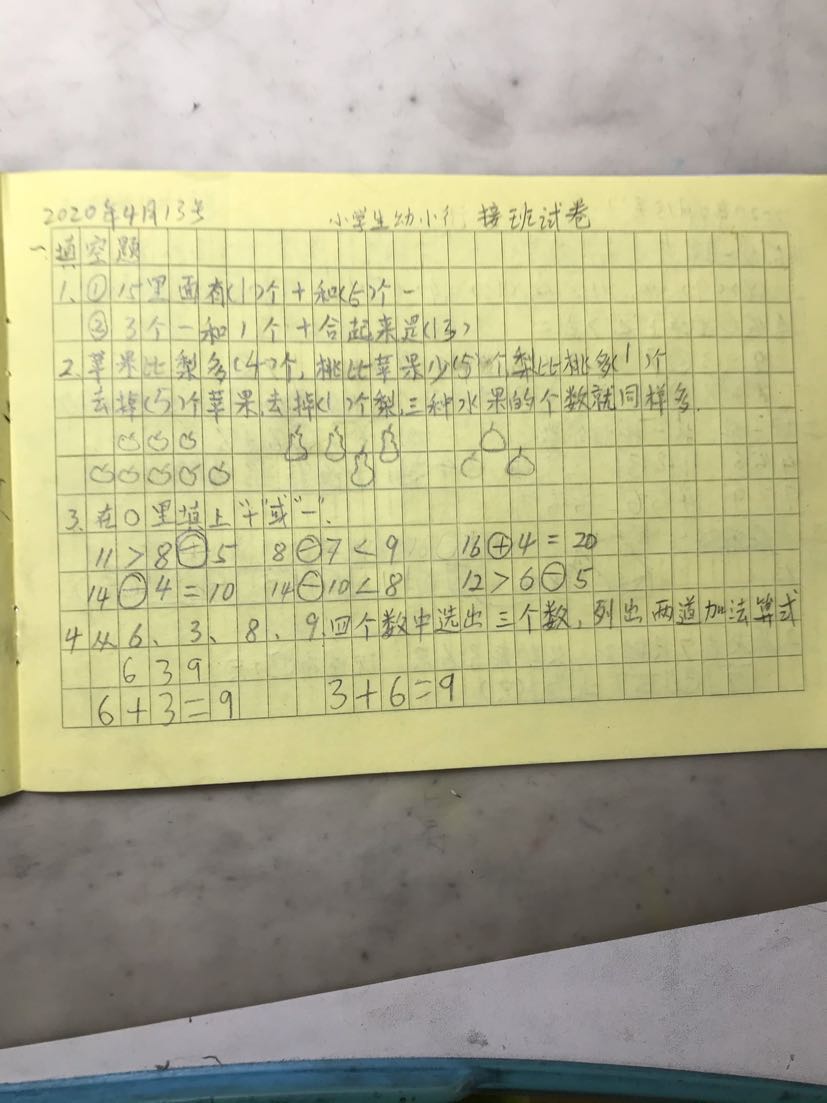 2020年4月13号
小学生幼小衔接班试卷
一、填空题
1、①15里面有(1)个十和(5)个一
②3个一和1个十合起来是(13)
2、苹果比梨多(4)个,桃比苹果少(5)个,梨比桃多(1)个
去掉(5)个苹果,去掉(1)个梨,三种水果的个数就同样多.
3、在○里填上"+"或"-".
11>8⊖5 8⊖7<9 16⊕4=20
14⊖4=10 14⊖10<8 12>6⊖5
4从6、3、8、9.四个数中选出三个数,列出两道加法算式
6 3 9
6+3=9 3+6=9